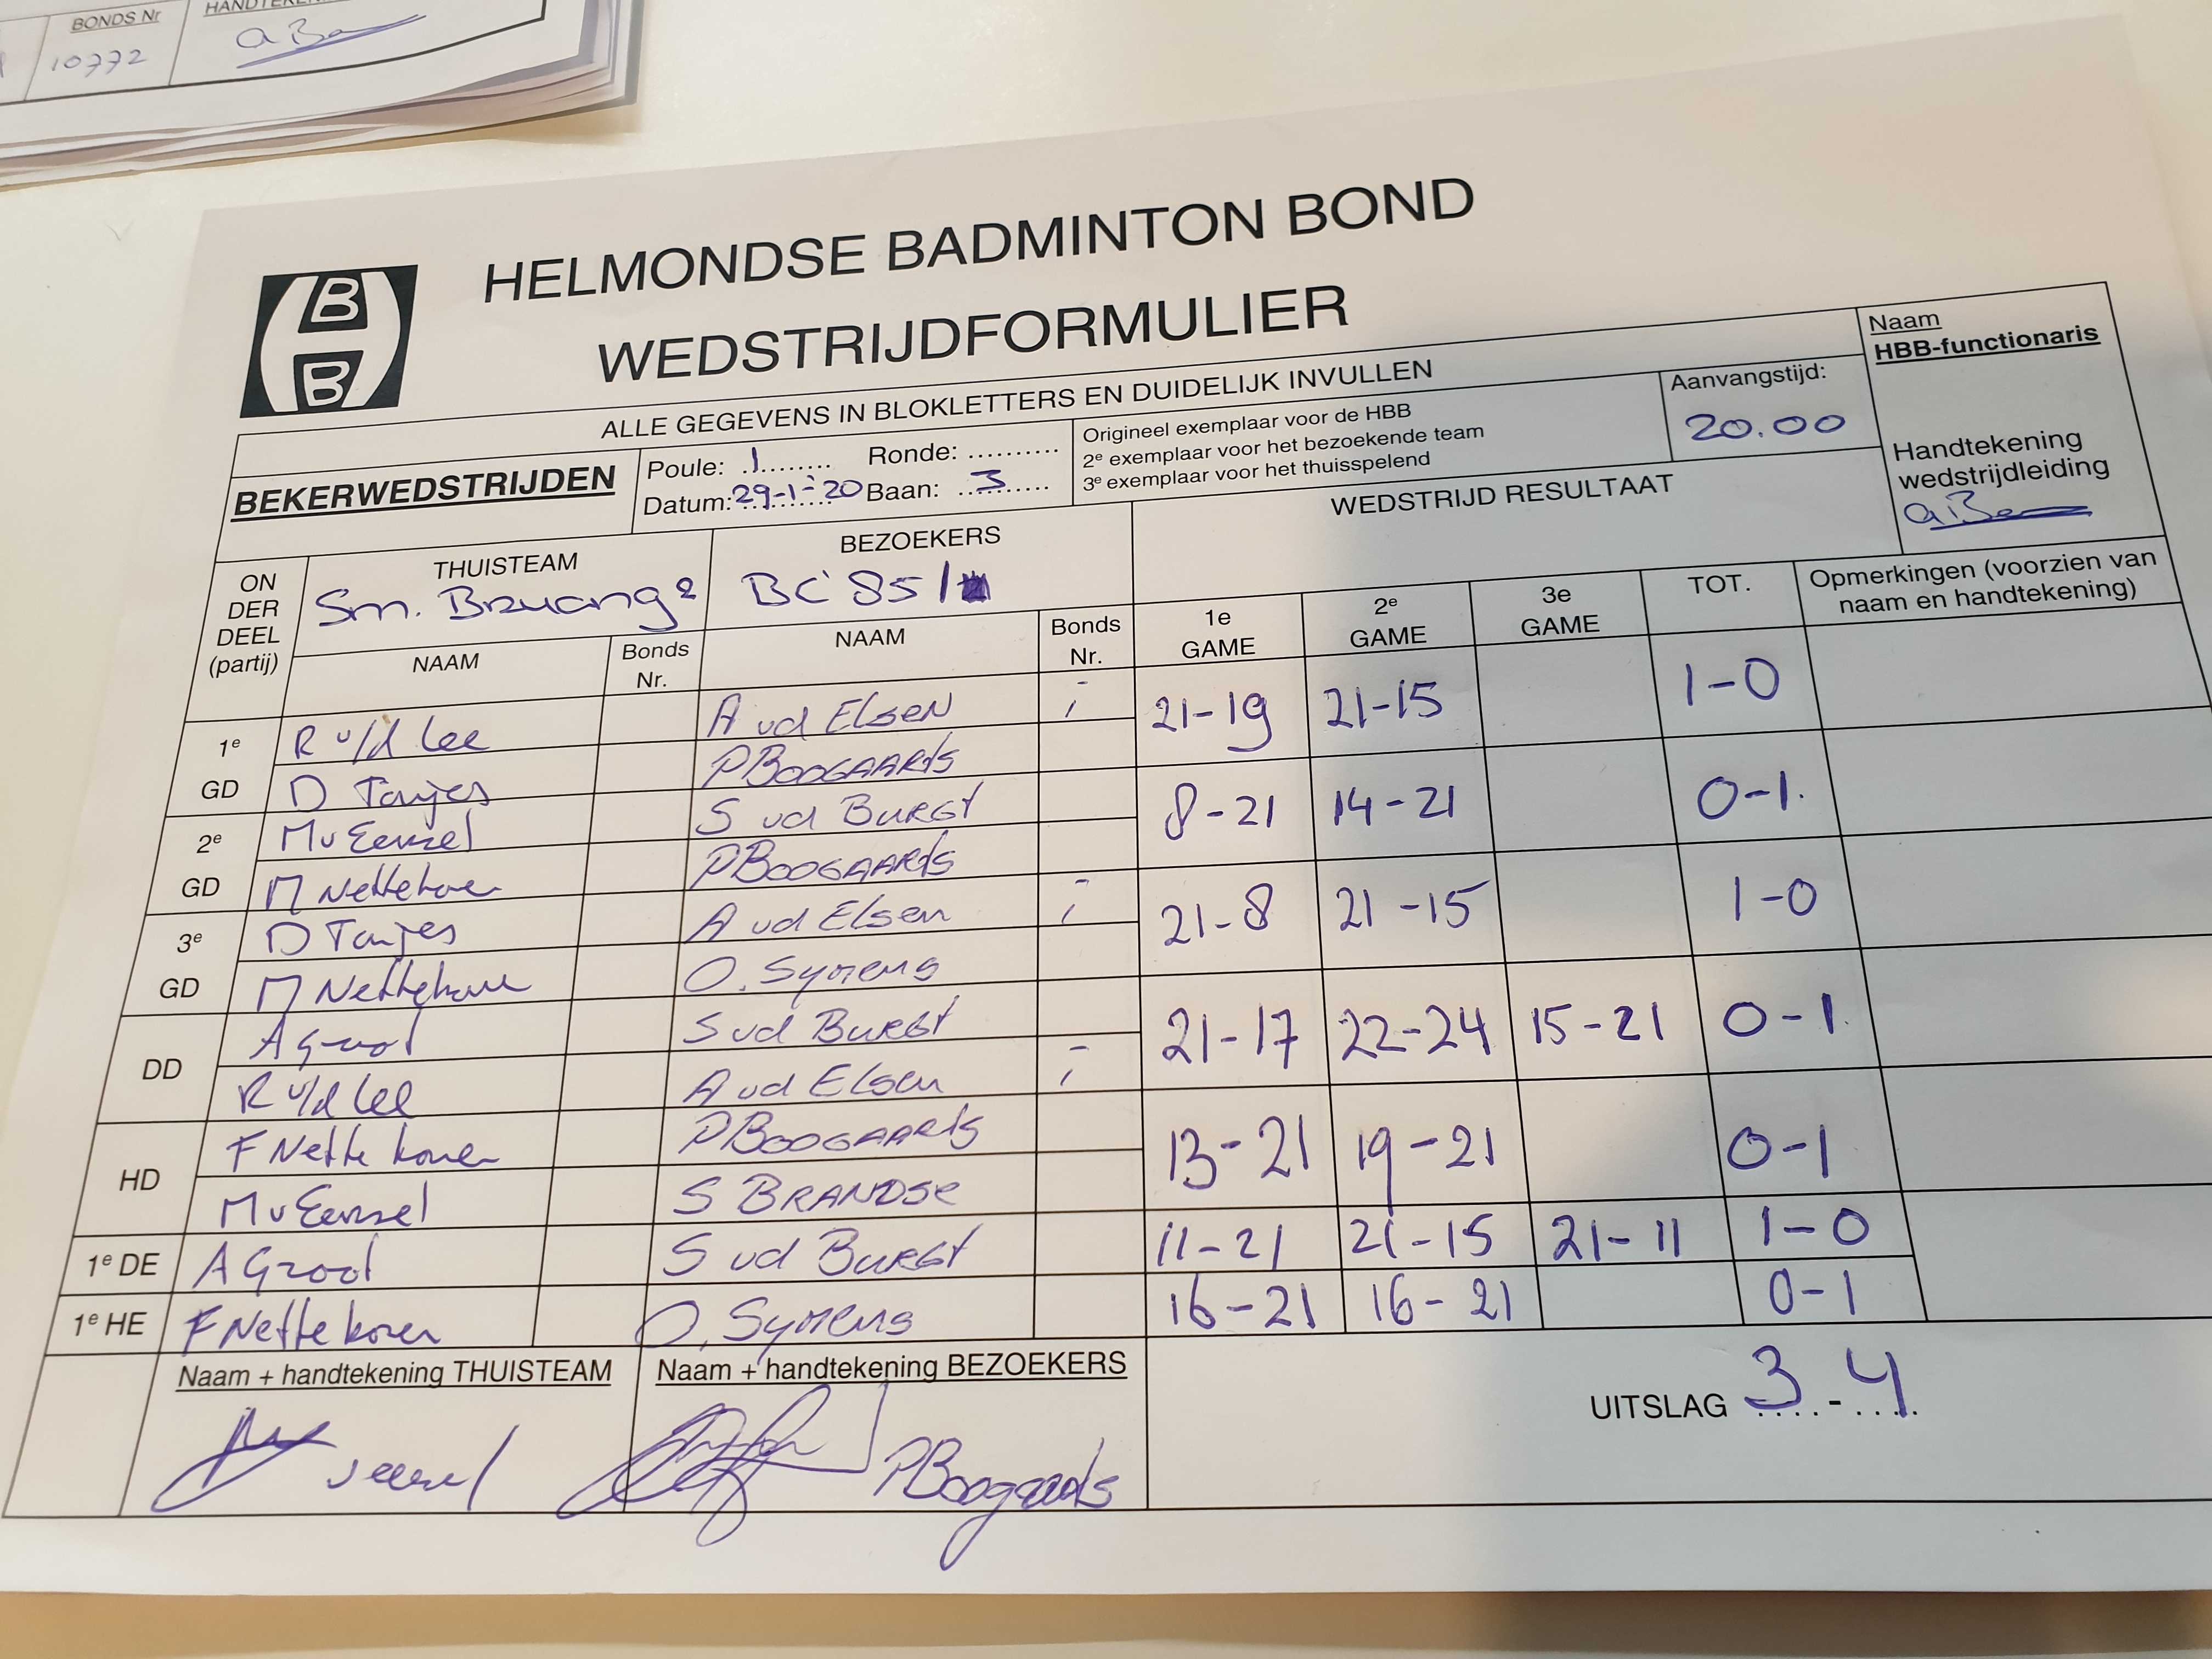 BONDS Nr
10772
B
B
HELMONDSE BADMINTON BOND
WEDSTRIJDFORMULIER
ALLE GEGEVENS IN BLOKLETTERS EN DUIDELIJK INVULLEN
BEKERWEDSTRIJDEN
Poule: 1 Ronde:
Datum: 29-1-'20 Baan: 3
Origineel exemplaar voor de HBB
2e exemplaar voor het bezoekende team
3e exemplaar voor het thuisspelend
Aanvangstijd:
20.00
Naam
HBB-functionaris
Handtekening
wedstrijdleiding
ON
DER
DEEL
(partij)
THUISTEAM
BEZOEKERS
BC'85/
WEDSTRIJD RESULTAAT
NAAM
Bonds
Nr.
NAAM
Bonds
Nr.
1e
GAME
2e
GAME
3e
GAME
TOT.
Opmerkingen (voorzien van
naam en handtekening)
1e
GD
R v/d Lee
A vd Elsen
21-19 21-15 1-0
D Tonjes
P BOOGAARTS
2e
GD
S vd Burgt
8-21 14-21 0-1
P BOOGAARTS
3e
GD
D Tonjes
A vd Elsen
21-8 21-15 1-0
O. Symens
DD
A Groot
S vd Burgt
21-17 22-24 15-21 0-1
R v/d Lee
A vd Elsen
HD
F Nettekoven
P BOOGAARTS
13-21 19-21 0-1
S BRANDSE
1e DE
A Groot
S vd Burgt
11-21 21-15 21-11 1-0
1e HE
F Nettekoven
O. Symens
16-21 16-21 0-1
Naam + handtekening THUISTEAM
Naam + handtekening BEZOEKERS
P Boogaarts
UITSLAG 3-4